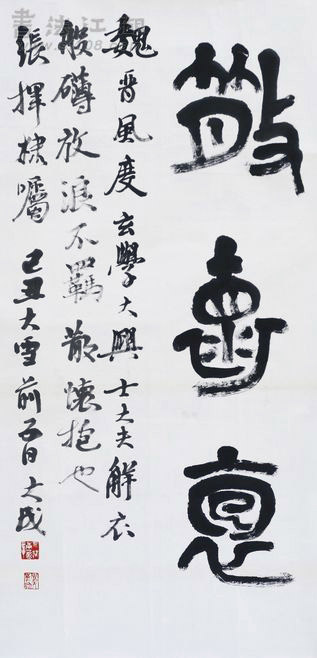 散
魏晋風度玄學大興士大夫解衣
般礴放浪不羈散懷抱也
張揮棣囑 己丑大雪前五日 大成
書法江湖